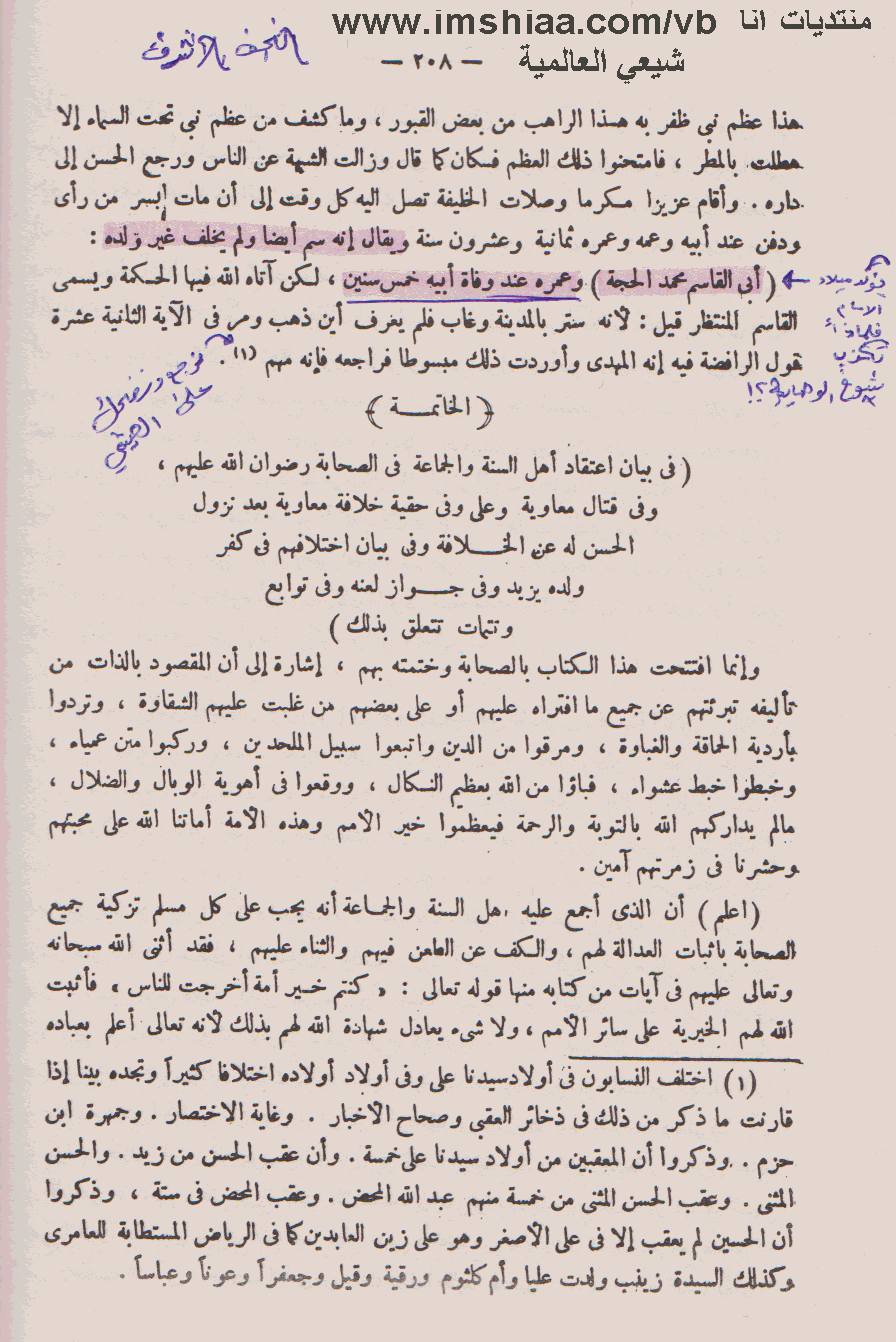 منتديات انا www.imshiaa.com/vb
شيعي العالمية
— ٢٠٨ —
النجف الاشرف
هذا عظم نبي ظفر به هـذا الراهب من بعض القبور ، وما كشف من عظم نبي تحت السماء إلا
هطلت بالمطر ، فامتحنوا ذلك العظم فكان كما قال وزالت الشبهة عن الناس ورجع الحسن إلى
داره . وأقام عزيزا مكرما وصلات الخليفة تصل اليه كل وقت إلى أن مات بسر من رأى
ودفن عند أبيه وعمه وعمره ثمانية وعشرون سنة ويقال إنه سم أيضا ولم يخلف غير ولده :
( أبى القاسم محمد الحجة ) وعمره عند وفاة أبيه خمس سنين ، لكن آتاه الله فيها الحكمة ويسمى
القاسم المنتظر قيل : لأنه ستر بالمدينة وغاب فلم يعرف أين ذهب ومر فى الآية الثانية عشرة
قول الرافضة فيه إنه المهدى وأوردت ذلك مبسوطا فراجعه فإنه مهم (١) .
ميلاد
الامام
فلماذا
شيوخ الوهابية ؟!
نرجع ونضحك
على الهيتمي
( الخاتمــة )
( فى بيان اعتقاد أهل السنة والجماعة فى الصحابة رضوان الله عليهم ،
وفى قتال معاوية وعلى وفى حقية خلافة معاوية بعد نزول
الحسن له عن الخـــلافة وفى بيان اختلافهم فى كفر
ولده يزيد وفى جـــواز لعنه وفى توابع
وتتمات تتعلق بذلك )
وإنما افتتحت هذا الكتاب بالصحابة وختمته بهم ، إشارة إلى أن المقصود بالذات من
تأليفه تبرئتهم عن جميع ما افتراه عليهم أو على بعضهم من غلبت عليهم الشقاوة ، وتردوا
بأردية الحماقة والغباوة ، ومرقوا من الدين واتبعوا سبيل الملحدين ، وركبوا متن عمياء ،
وخبطوا خبط عشواء ، فباؤا من الله بعظيم النكال ، ووقعوا فى أهوية الوبال والضلال ،
مالم يداركهم الله بالتوبة والرحمة فيعظموا خير الأمم وهذه الأمة أماتنا الله على محبتهم
وحشرنا فى زمرتهم آمين .
( اعلم ) أن الذى أجمع عليه أهل السنة والجماعة أنه يجب على كل مسلم تزكية جميع
الصحابة باثبات العدالة لهم ، والكف عن الطعن فيهم والثناء عليهم ، فقد أثنى الله سبحانه
وتعالى عليهم فى آيات من كتابه منها قوله تعالى : « كنتم خـير أمة أخرجت للناس » فأثبت
الله لهم الخيرية على سائر الأمم ، ولا شىء يعادل شهادة الله لهم بذلك لأنه تعالى أعلم بعباده
(١) اختلف النسابون فى أولاد سيدنا على وفى أولاد أولاده اختلافا كثيراً وتجده بينا إذا
قارنت ما ذكر من ذلك فى ذخائر العقبى وصحاح الأخبار . وغاية الاختصار . وجمهرة ابن
حزم . وذكروا أن المعقبين من أولاد سيدنا على خمسة . وأن عقب الحسن من زيد . والحسن
المثنى . وعقب الحسن المثنى من خمسة منهم عبد الله المحض . وعقب المحض فى ستة ، وذكروا
أن الحسين لم يعقب إلا فى على الأصغر وهو على زين العابدين كما فى الرياض المستطابة للعامرى
وكذلك السيدة زينب ولدت عليا وأم كلثوم ورقية وقيل وجعفراً وعوناً وعباساً .